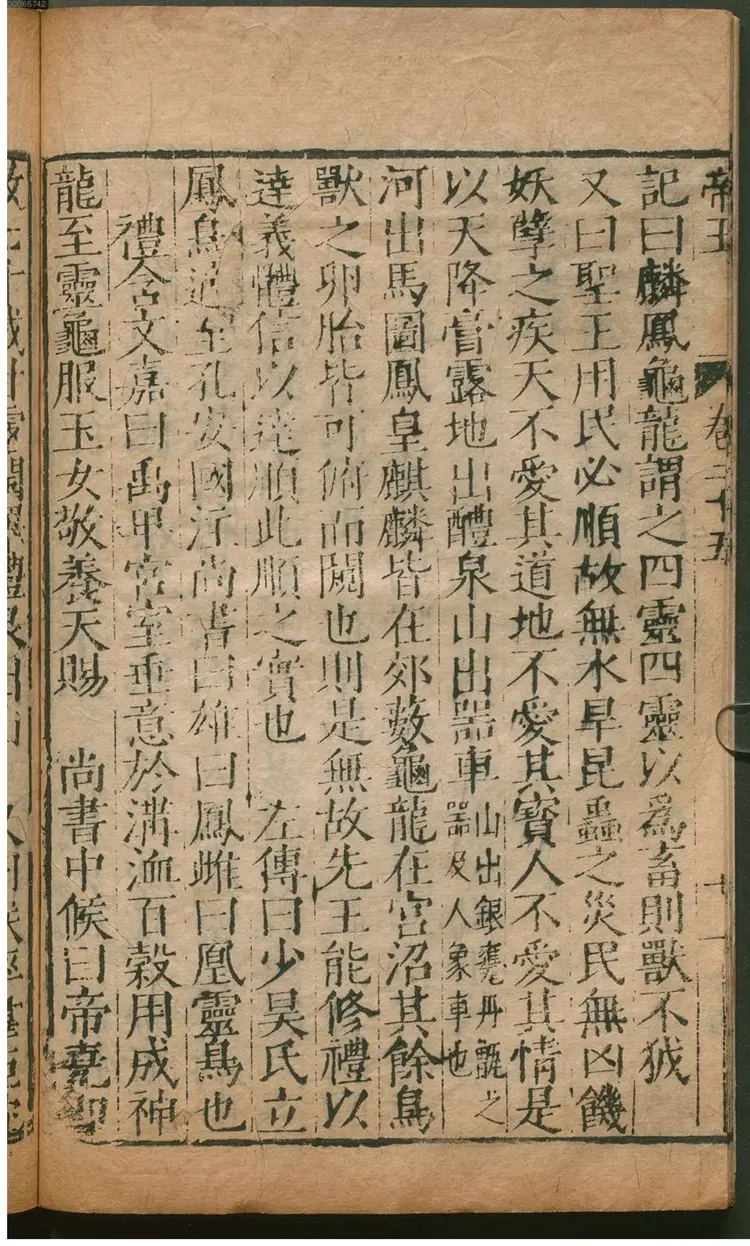 00065742
帝王 卷三十五
記曰麟鳳龜龍謂之四靈四靈以爲畜則獸不狘
又曰聖王用民必順故無水旱昆蟲之災民無凶饑
妖孽之疾天不愛其道地不愛其寶人不愛其情是
以天降膏露地出醴泉山出器車山出銀甕丹甑之器及人象車也
河出馬圖鳳皇麒麟皆在郊藪龜龍在宮沼其餘鳥
獸之卵胎皆可俯而闚也則是無故先王能修禮以
達義體信以達順此順之實也 左傳曰少昊氏立
鳳鳥適至孔安國注尚書曰雄曰鳳雌曰凰靈鳥也
禮含文嘉曰禹卑宮室垂意於溝洫百穀用成神
龍至靈龜服玉女敬養天賜 尚書中候曰帝堯卽